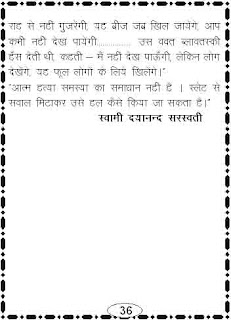 राह से नहीं गुजरेंगी, यह बीज जब खिल जायेंगे, आप
कभी नहीं देख पायेंगी............... उस वक्त ब्लावतस्की
हँस देती थी, कहती – मैं नहीं देख पाऊँगी, लेकिन लोग
देखेंगे, यह फूल लोगों के लिये खिलेंगे।"
"आत्म हत्या समस्या का समाधान नहीं है । स्लेट से
सवाल मिटाकर उसे हल कैसे किया जा सकता है।"
स्वामी दयानन्द सरस्वती
36